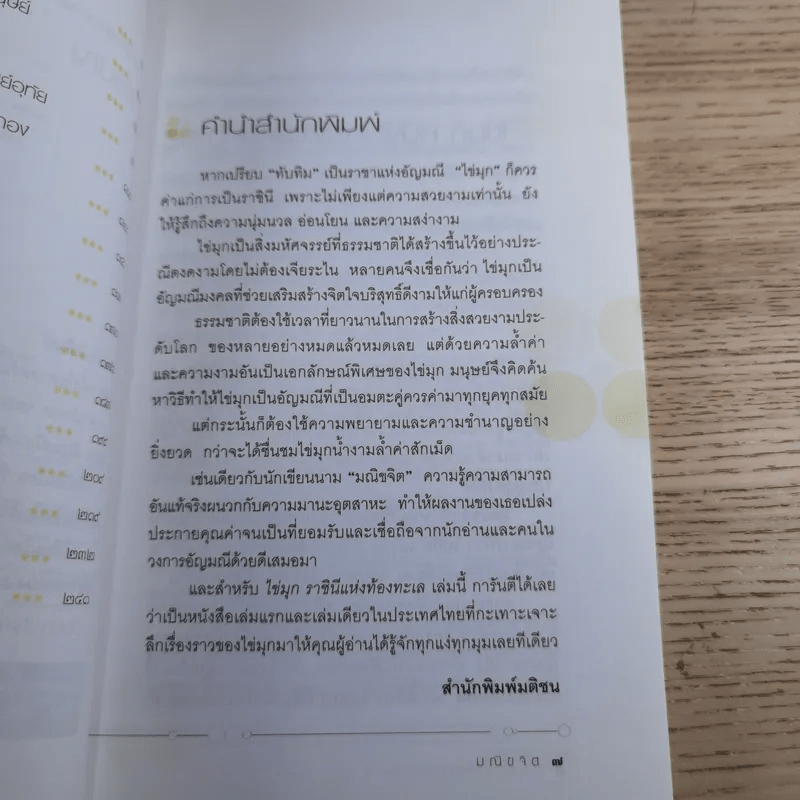 คำนำสำนักพิมพ์
หากเปรียบ "ทับทิม" เป็นราชาแห่งอัญมณี "ไข่มุก" ก็ควร
ค่าแก่การเป็นราชินี เพราะไม่เพียงแต่ความสวยงามเท่านั้น ยัง
ให้รู้สึกถึงความนุ่มนวล อ่อนโยน และความสง่างาม
ไข่มุกเป็นสิ่งมหัศจรรย์ที่ธรรมชาติได้สร้างขึ้นไว้อย่างประ-
ณีตงดงามโดยไม่ต้องเจียระไน หลายคนจึงเชื่อกันว่า ไข่มุกเป็น
อัญมณีมงคลที่ช่วยเสริมสร้างจิตใจบริสุทธิ์ดีงามให้แก่ผู้ครอบครอง
ธรรมชาติต้องใช้เวลาที่ยาวนานในการสร้างสิ่งสวยงามประ-
ดับโลก ของหลายอย่างหมดแล้วหมดเลย แต่ด้วยความล้ำค่า
และความงามอันเป็นเอกลักษณ์พิเศษของไข่มุก มนุษย์จึงคิดค้น
หาวิธีทำให้ไข่มุกเป็นอัญมณีที่เป็นอมตะคู่ควรค่ามาทุกยุคทุกสมัย
แต่กระนั้นก็ต้องใช้ความพยายามและความชำนาญอย่าง
ยิ่งยวด กว่าจะได้ชื่นชมไข่มุกน้ำงามล้ำค่าสักเม็ด
เช่นเดียวกับนักเขียนนาม "มณิขจิต" ความรู้ความสามารถ
อันแท้จริงผนวกกับความมานะอุตสาหะ ทำให้ผลงานของเธอเปล่ง
ประกายคุณค่าจนเป็นที่ยอมรับและเชื่อถือจากนักอ่านและคนใน
วงการอัญมณีด้วยดีเสมอมา
และสำหรับ ไข่มุก ราชินีแห่งท้องทะเล เล่มนี้ การันตีได้เลย
ว่าเป็นหนังสือเล่มแรกและเล่มเดียวในประเทศไทยที่กะเทาะเจาะ
ลึกเรื่องราวของไข่มุกมาให้คุณผู้อ่านได้รู้จักทุกแง่ทุกมุมเลยทีเดียว
สำนักพิมพ์มติชน
มณิขจิต ๗
๒๐๙
๒๑๙
๒๓๒
๒๔๐